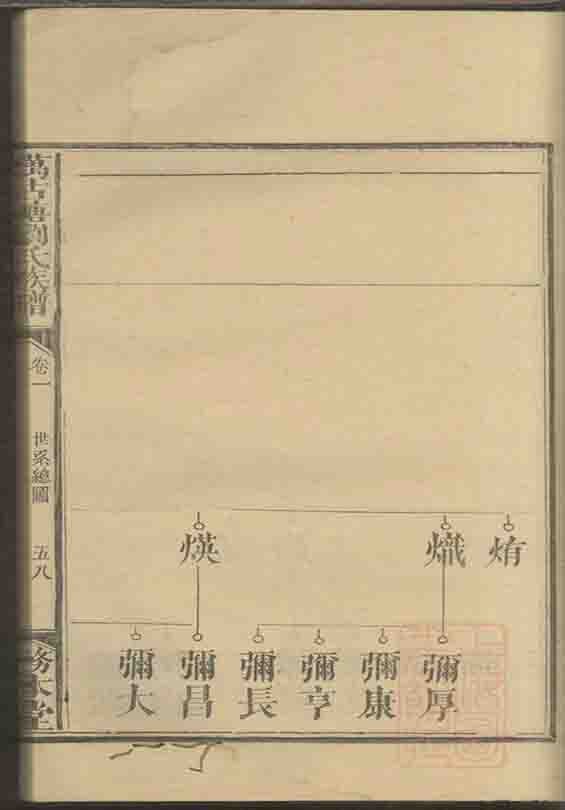 烠 熾 煐
彌厚
彌康
彌亨
彌長
彌昌
彌大
萬古塘劉氏族譜
卷一
世系總圖
五八
務本堂